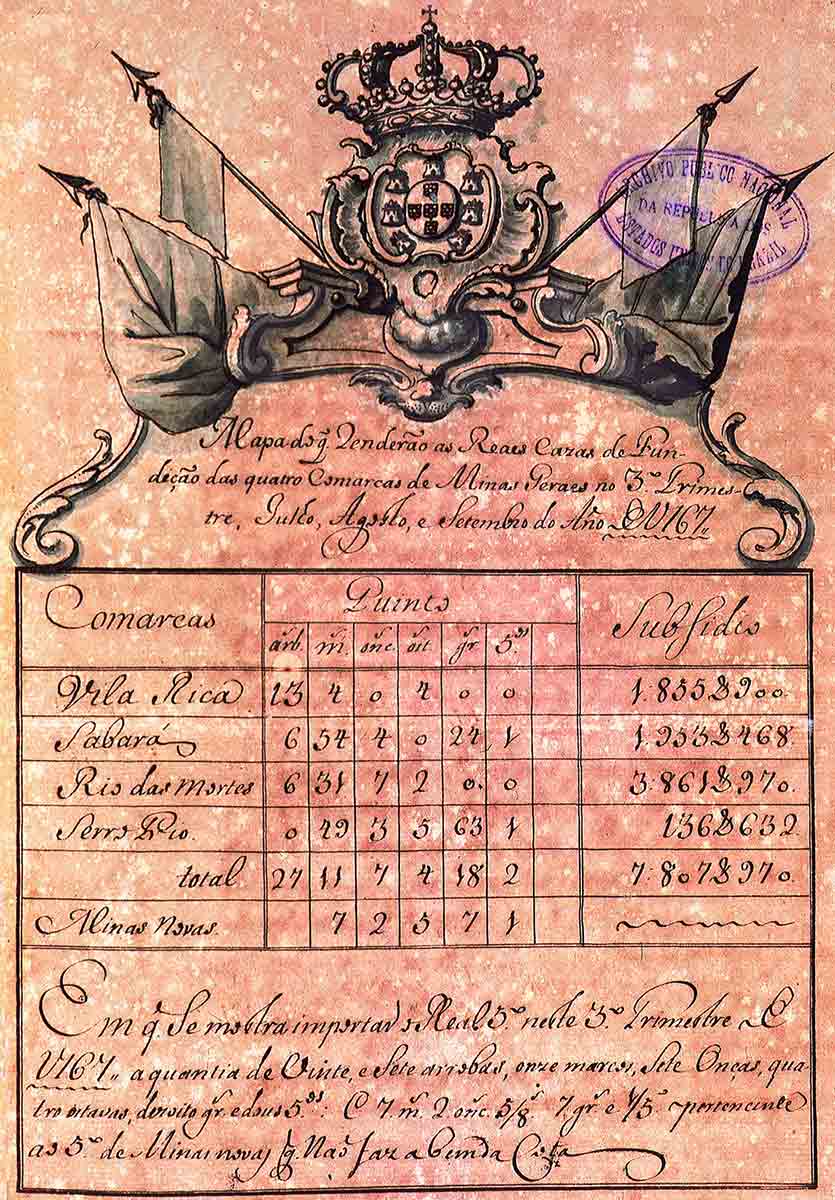 ARCHIVO PUBLICO NACIONAL
DA REPUBLICA DOS
ESTADOS UNIDOS DO BRAZIL
Mapa do q̃. Renderão as Reaes Cazas de Fun-
deção das quatro Comarcas de Minas Geraes no 3.º Trimes-
tre, Julho, Agosto, e Setembro do Año
Comarcas Quinto Subsidio
arb. m. onc. oit. gr. 5.os
Vila Rica 13 4 0 4 0 0 1:855$900.
Sabará 6 54 4 0 24 1 1:953$468.
Rio das Mortes 6 31 7 2 0. 0 3:861$970.
Serro Frio. 0 49 3 5 63 1 136$632.
total 27 11 7 4 18 2 7:807$970.
Minas Novas. 7 2 5 7 1
Em q̃. Se mostra importar o Real 5.º neste 3.º Trimestre de
a quantia de Vinte, e Sete arrobas, onze marcos, Sete Onças, qua-
tro oitavas, dezoito gr. e dous 5.os: E 7. m. 2 onc. 5/8.s 7. gr. e 1/5.º pertencente
ao 5.º de Minas novas q̃. Nao faz a bem da Cota